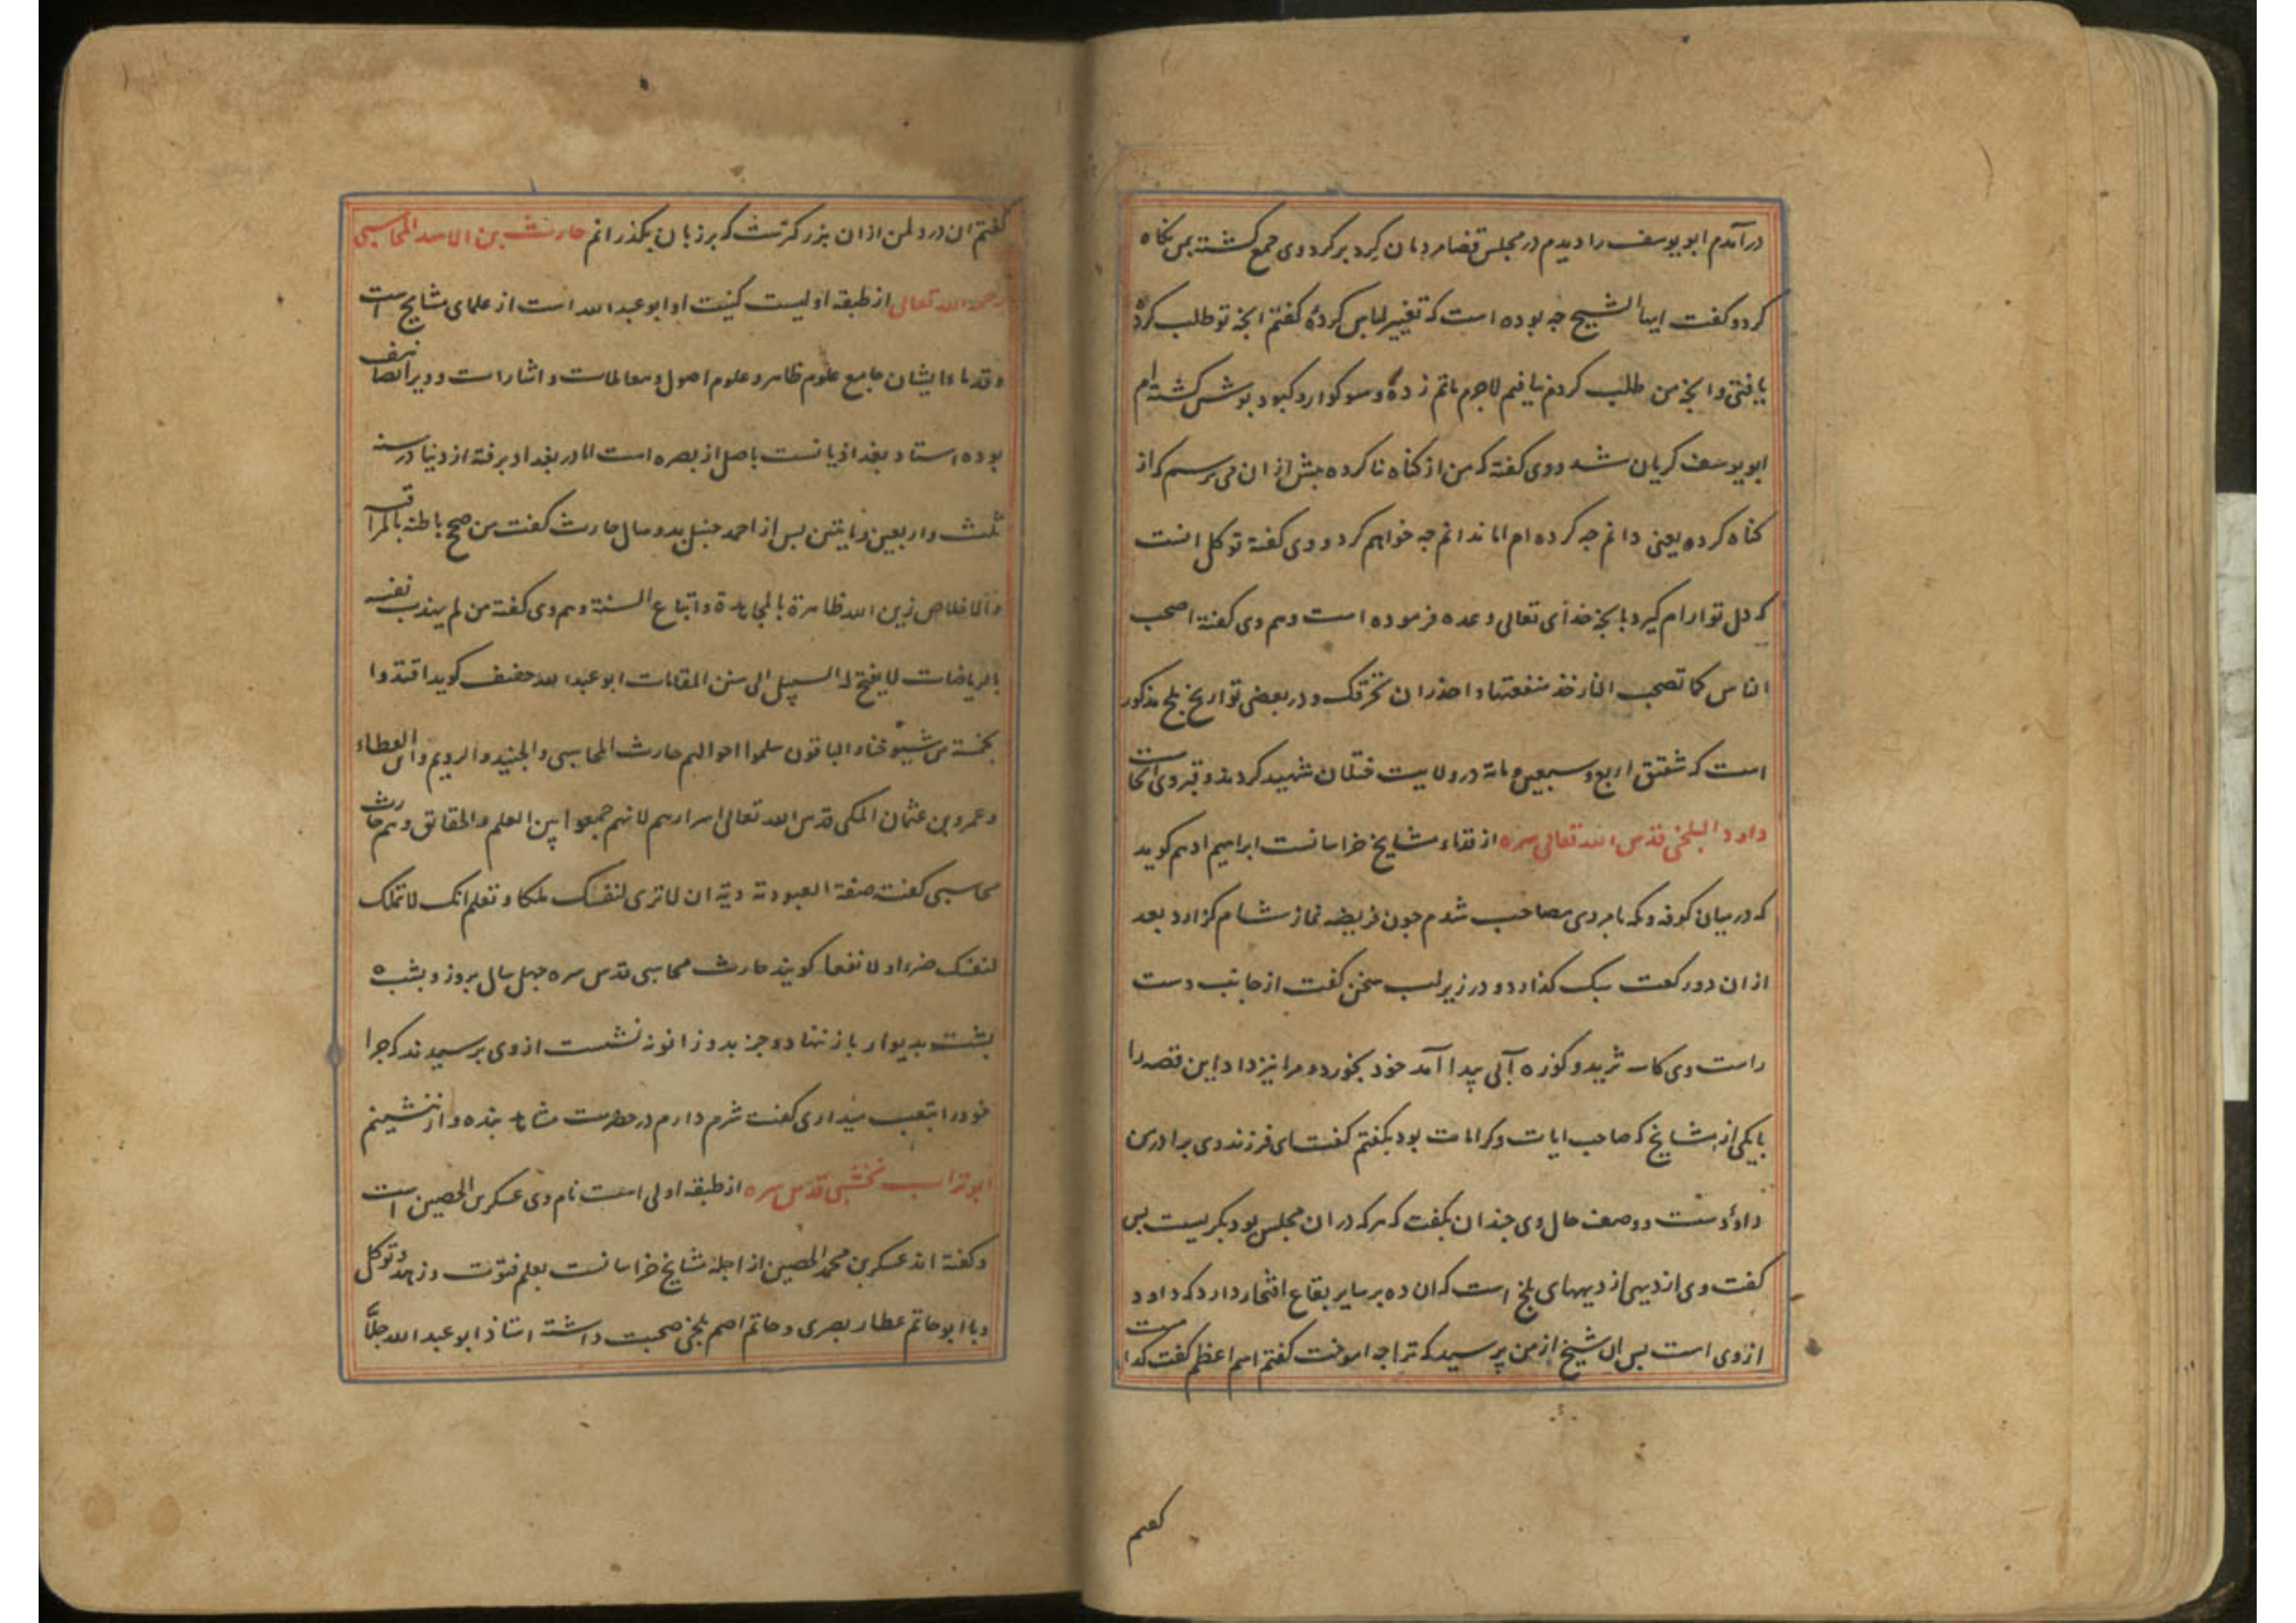 درآمدم ابو یوسف را دیدم در مجلس قضا مردمان کرد بر کرد وی جمع کشته بمن نکاه
کرد و کفت ایها الشیخ جه بوده است که تغییر لباس کردهٔ کفتم انجه تو طلب کردی
یافتی و انجه من طلب کردم نیافتم لاجرم ماتم زدهٔ و سوکوار و کبود بوش کشته ام
ابو یوسف کریان شد و وی کفته که من از کناه نا کرده بیش از ان می ترسم که از
کناه کرده یعنی دانم جه کرده ام اما ندانم جه خواهم کرد و وی کفته توکل انست
که دل تو ارام کیرد بانجه خدای تعالی وعده فرموده است و هم وی کفته اصحب
الناس کما تصحب النار خذ منفعتها و احذر ان تحرقک و در بعضی تواریخ بلخ مذکور
است که شقیق اربع و سبعین و مائة در ولایت ختلان شهید کردند و قبر وی آنجاست
داود البلخی قدس الله تعالی سره از قدماء مشایخ خراسانست ابراهیم ادهم کوید
که در میان کوفه و مکه با مردی مصاحب شدم جون فریضه نماز شام کزارد بعد
از ان دو رکعت سبک کذارد و در زیر لب سخن کفت از جانب دست
راست وی کاسه ثرید و کوزه آبی پیدا آمد خود بخورد و مرا نیز داد این قصه را
با یکی از مشایخ که صاحب ایات و کرامات بود بکفتم کفت ای فرزند وی برادر من
داؤدست و وصف حال وی جندان بکفت که هر که در ان مجلس بود بکریست بس
کفت وی از دیهی از دیههای بلخ است که ان ده بر سایر بقاع افتخار دارد که داود
از وی است بس ان شیخ از من پرسید که ترا جه اموخت کفتم اسم اعظم کفت کدامست
کفتم
کفتم ان در دل من از ان بزرکترست که بر زبان بکذرانم حارث بن الاسد المحاسبی
رحمه الله تعالی از طبقه اولیست کنیت او ابو عبدالله است از علمای مشایخ است
و قدماء ایشان جامع علوم ظاهر و علوم اصول و معاملات و اشارات و ویرا تصانیف
بوده استاد بغدادیانست باصل از بصره است اما در بغداد برفته از دنیا در سنه
ثلث و اربعین و مایتین بس از احمد حنبل بدو سال حارث کفت من صحح باطنه بالمراقبة
و الاخلاص زین الله ظاهره بالمجاهدة و اتباع السنة و هم وی کفته من لم یهذب نفسه
بالریاضات لا یفتح له السبیل الی سنن المقامات ابو عبدالله خفیف کوید اقتدوا
بخمسة من شیوخنا و الباقون سلموا احوالهم حارث المحاسبی و الجنید و الرویم و ابن العطاء
و عمرو بن عثمان المکی قدس الله تعالی اسرارهم لانهم جمعوا بین العلم و الحقائق و هم حارث
محاسبی کفت صفة العبودیة ان لا تری لنفسک ملکا و تعلم انک لا تملک
لنفسک ضرا و لا نفعا کویند حارث محاسبی قدس سره جهل سال بروز و بشب
بشت بدیوار باز ننهاد و جز بدو زانو ننشست از وی برسیدند که جرا
خود را بتعب میداری کفت شرم دارم در حضرت مشاهده بنده وار ننشینم
ابو تراب نخشبی قدس سره از طبقه اولی است نام وی عسکر بن الحصین است
و کفته اند عسکر بن محمد الحصین از اجله مشایخ خراسانست بعلم فتوت و زهد و توکل
و با ابو حاتم عطار بصری و حاتم اصم بلخی صحبت داشته استاذ ابو عبدالله جلّا